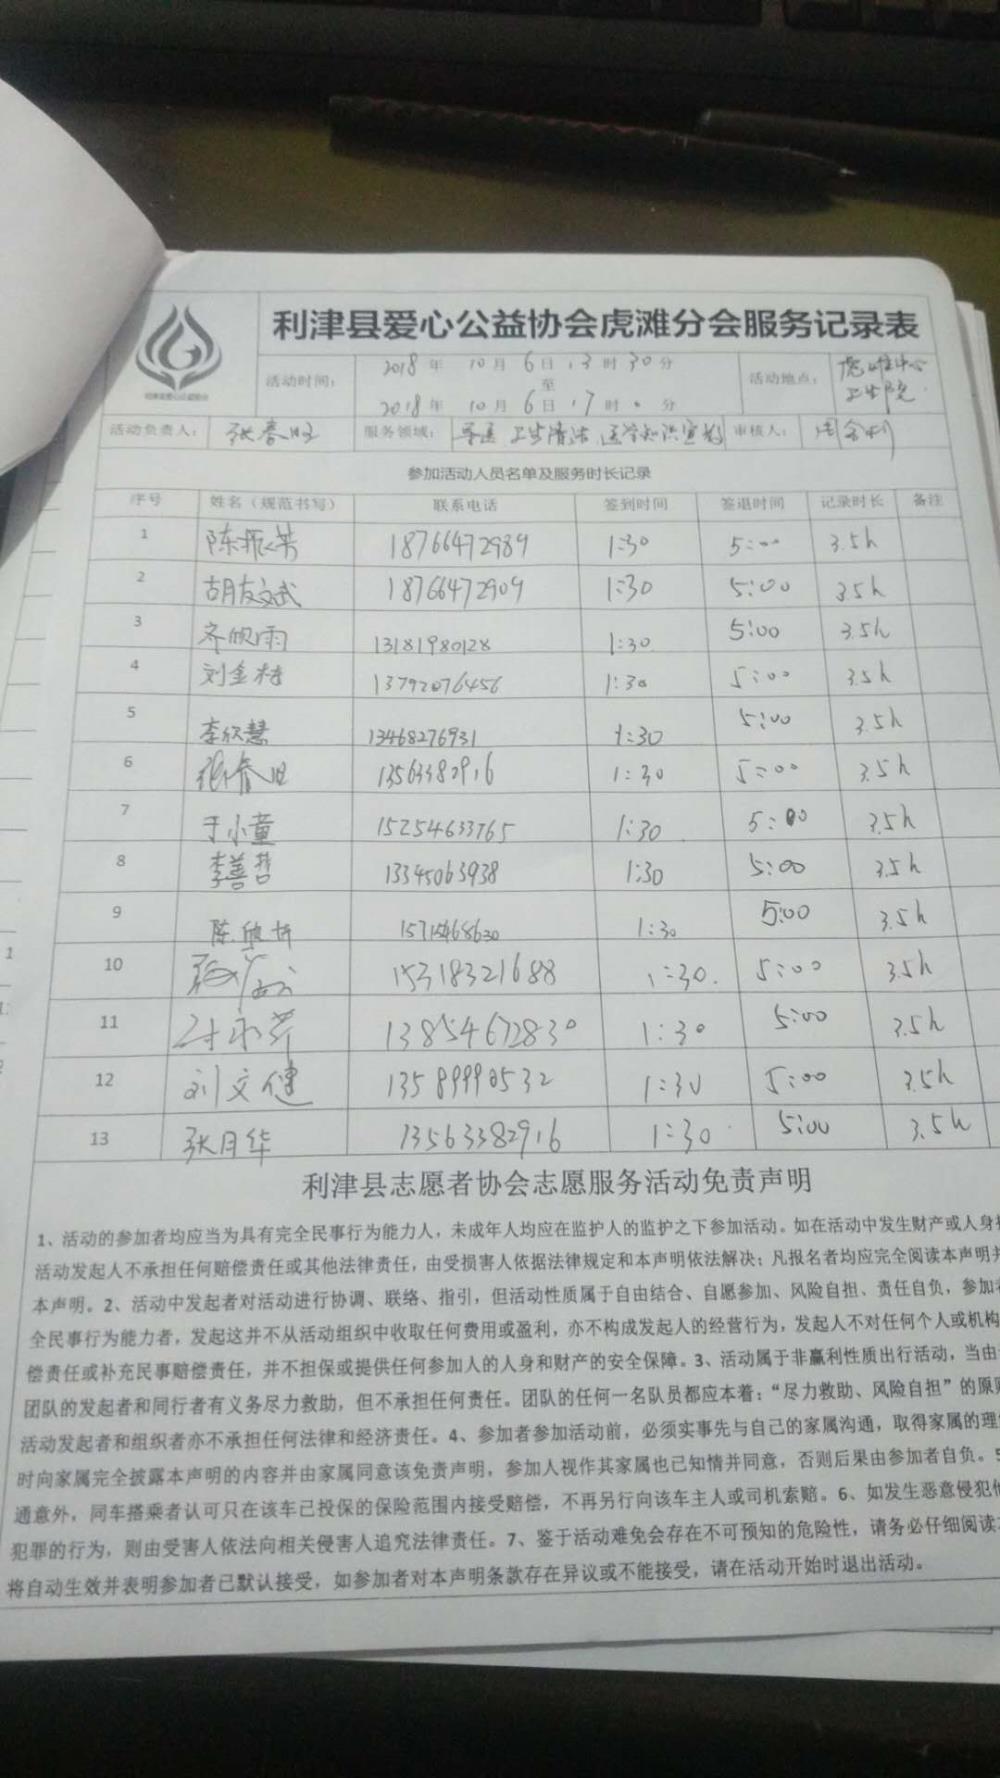 利津县爱心公益协会虎滩分会服务记录表
活动时间： 2018年 10月 6日 13时30分 至 2018年 10月 6日 17时0分
活动地点： 虎滩中心卫生院
活动负责人： 张春旺 服务领域： 导医 卫生清洁 医学知识宣传 审核人：
参加活动人员名单及服务时长记录
序号 姓名（规范书写） 联系电话 签到时间 签退时间 记录时长 备注
1 陈振芳 18766472989 1:30 5:00 3.5h
2 胡友文武 18766472909 1:30 5:00 3.5h
3 齐欣雨 13181980128 1:30 5:00 3.5h
4 刘金梅 13792076456 1:30 5:00 3.5h
5 李欣慧 13468276931 1:30 5:00 3.5h
6 张春旺 13563382916 1:30 5:00 3.5h
7 于小童 15254633765 1:30 5:00 3.5h
8 李善哲 13345063938 1:30 5:00 3.5h
9 陈 15715468630 1:30 5:00 3.5h
10 15318321688 1:30. 5:00 3.5h
11 13854672830 1:30 5:00 3.5h
12 刘文健 13589990532 1:30 5:00 3.5h
13 张月华 13563382916 1:30 5:00 3.5h
利津县志愿者协会志愿服务活动免责声明
1、活动的参加者均应当为具有完全民事行为能力人，未成年人均应在监护人的监护之下参加活动。如在活动中发生财产或人身
活动发起人不承担任何赔偿责任或其他法律责任，由受损害人依据法律规定和本声明依法解决；凡报名者均应完全阅读本声明并
本声明。2、活动中发起者对活动进行协调、联络、指引，但活动性质属于自由结合、自愿参加、风险自担、责任自负，参加者
全民事行为能力者，发起这并不从活动组织中收取任何费用或盈利，亦不构成发起人的经营行为，发起人不对任何个人或机构
偿责任或补充民事赔偿责任，并不担保或提供任何参加人的人身和财产的安全保障。3、活动属于非赢利性质出行活动，当由
团队的发起者和同行者有义务尽力救助，但不承担任何责任。团队的任何一名队员都应本着：“尽力救助、风险自担”的原则
活动发起者和组织者亦不承担任何法律和经济责任。4、参加者参加活动前，必须实事先与自己的家属沟通，取得家属的理
时向家属完全披露本声明的内容并由家属同意该免责声明，参加人视作其家属也已知情并同意，否则后果由参加者自负。5
通意外，同车搭乘者认可只在该车已投保的保险范围内接受赔偿，不再另行向该车主人或司机索赔。6、如发生恶意侵犯他
犯罪的行为，则由受害人依法向相关侵害人追究法律责任。7、鉴于活动难免会存在不可预知的危险性，请务必仔细阅读
将自动生效并表明参加者已默认接受，如参加者对本声明条款存在异议或不能接受，请在活动开始时退出活动。